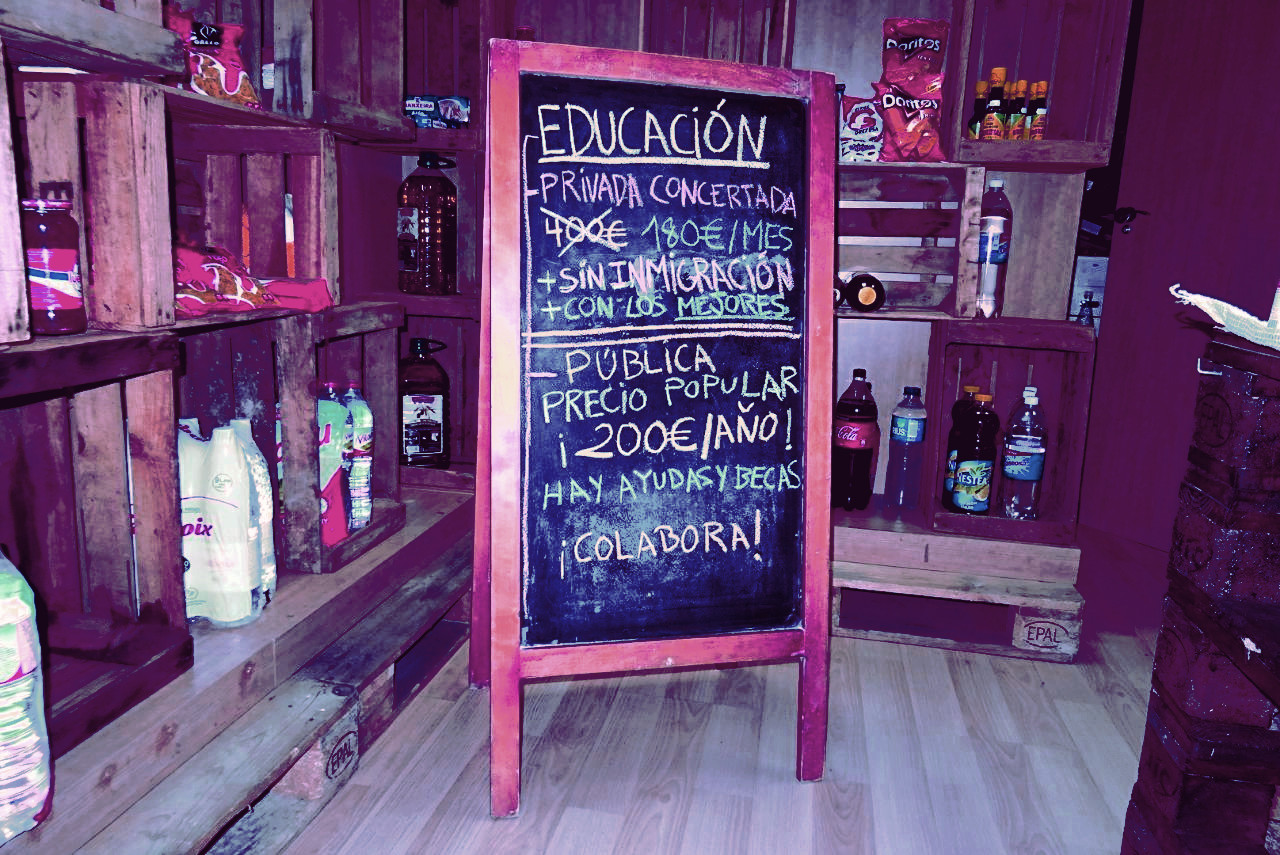 EDUCACIÓN
-PRIVADA CONCERTADA
400€ 180€/MES
+SIN INMIGRACIÓN
+CON LOS MEJORES
-PÚBLICA
PRECIO POPULAR
¡200€/AÑO!
HAY AYUDAS Y BECAS
¡COLABORA!
Doritos
Doritos
Cola
NESTEA
EPAL
EPAL